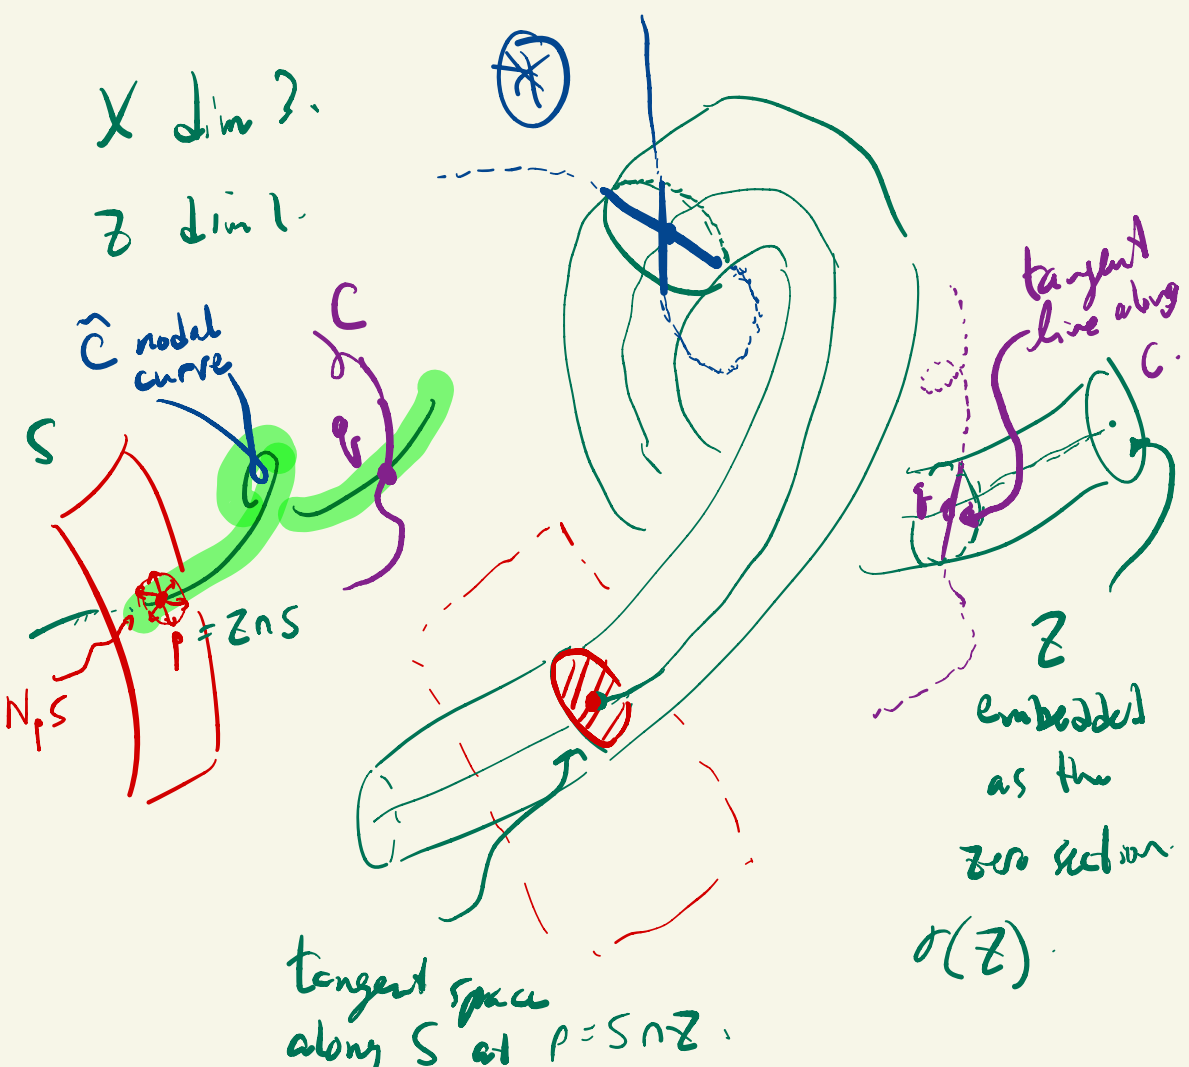 X dim 3.
Z dim 1.
Ĉ nodal
curve
C
S
q
p = Z∩S
NₚS
tangent
line along
C.
q
Z
embedded
as the
zero section
σ(Z).
tangent space
along S at p = S∩Z.